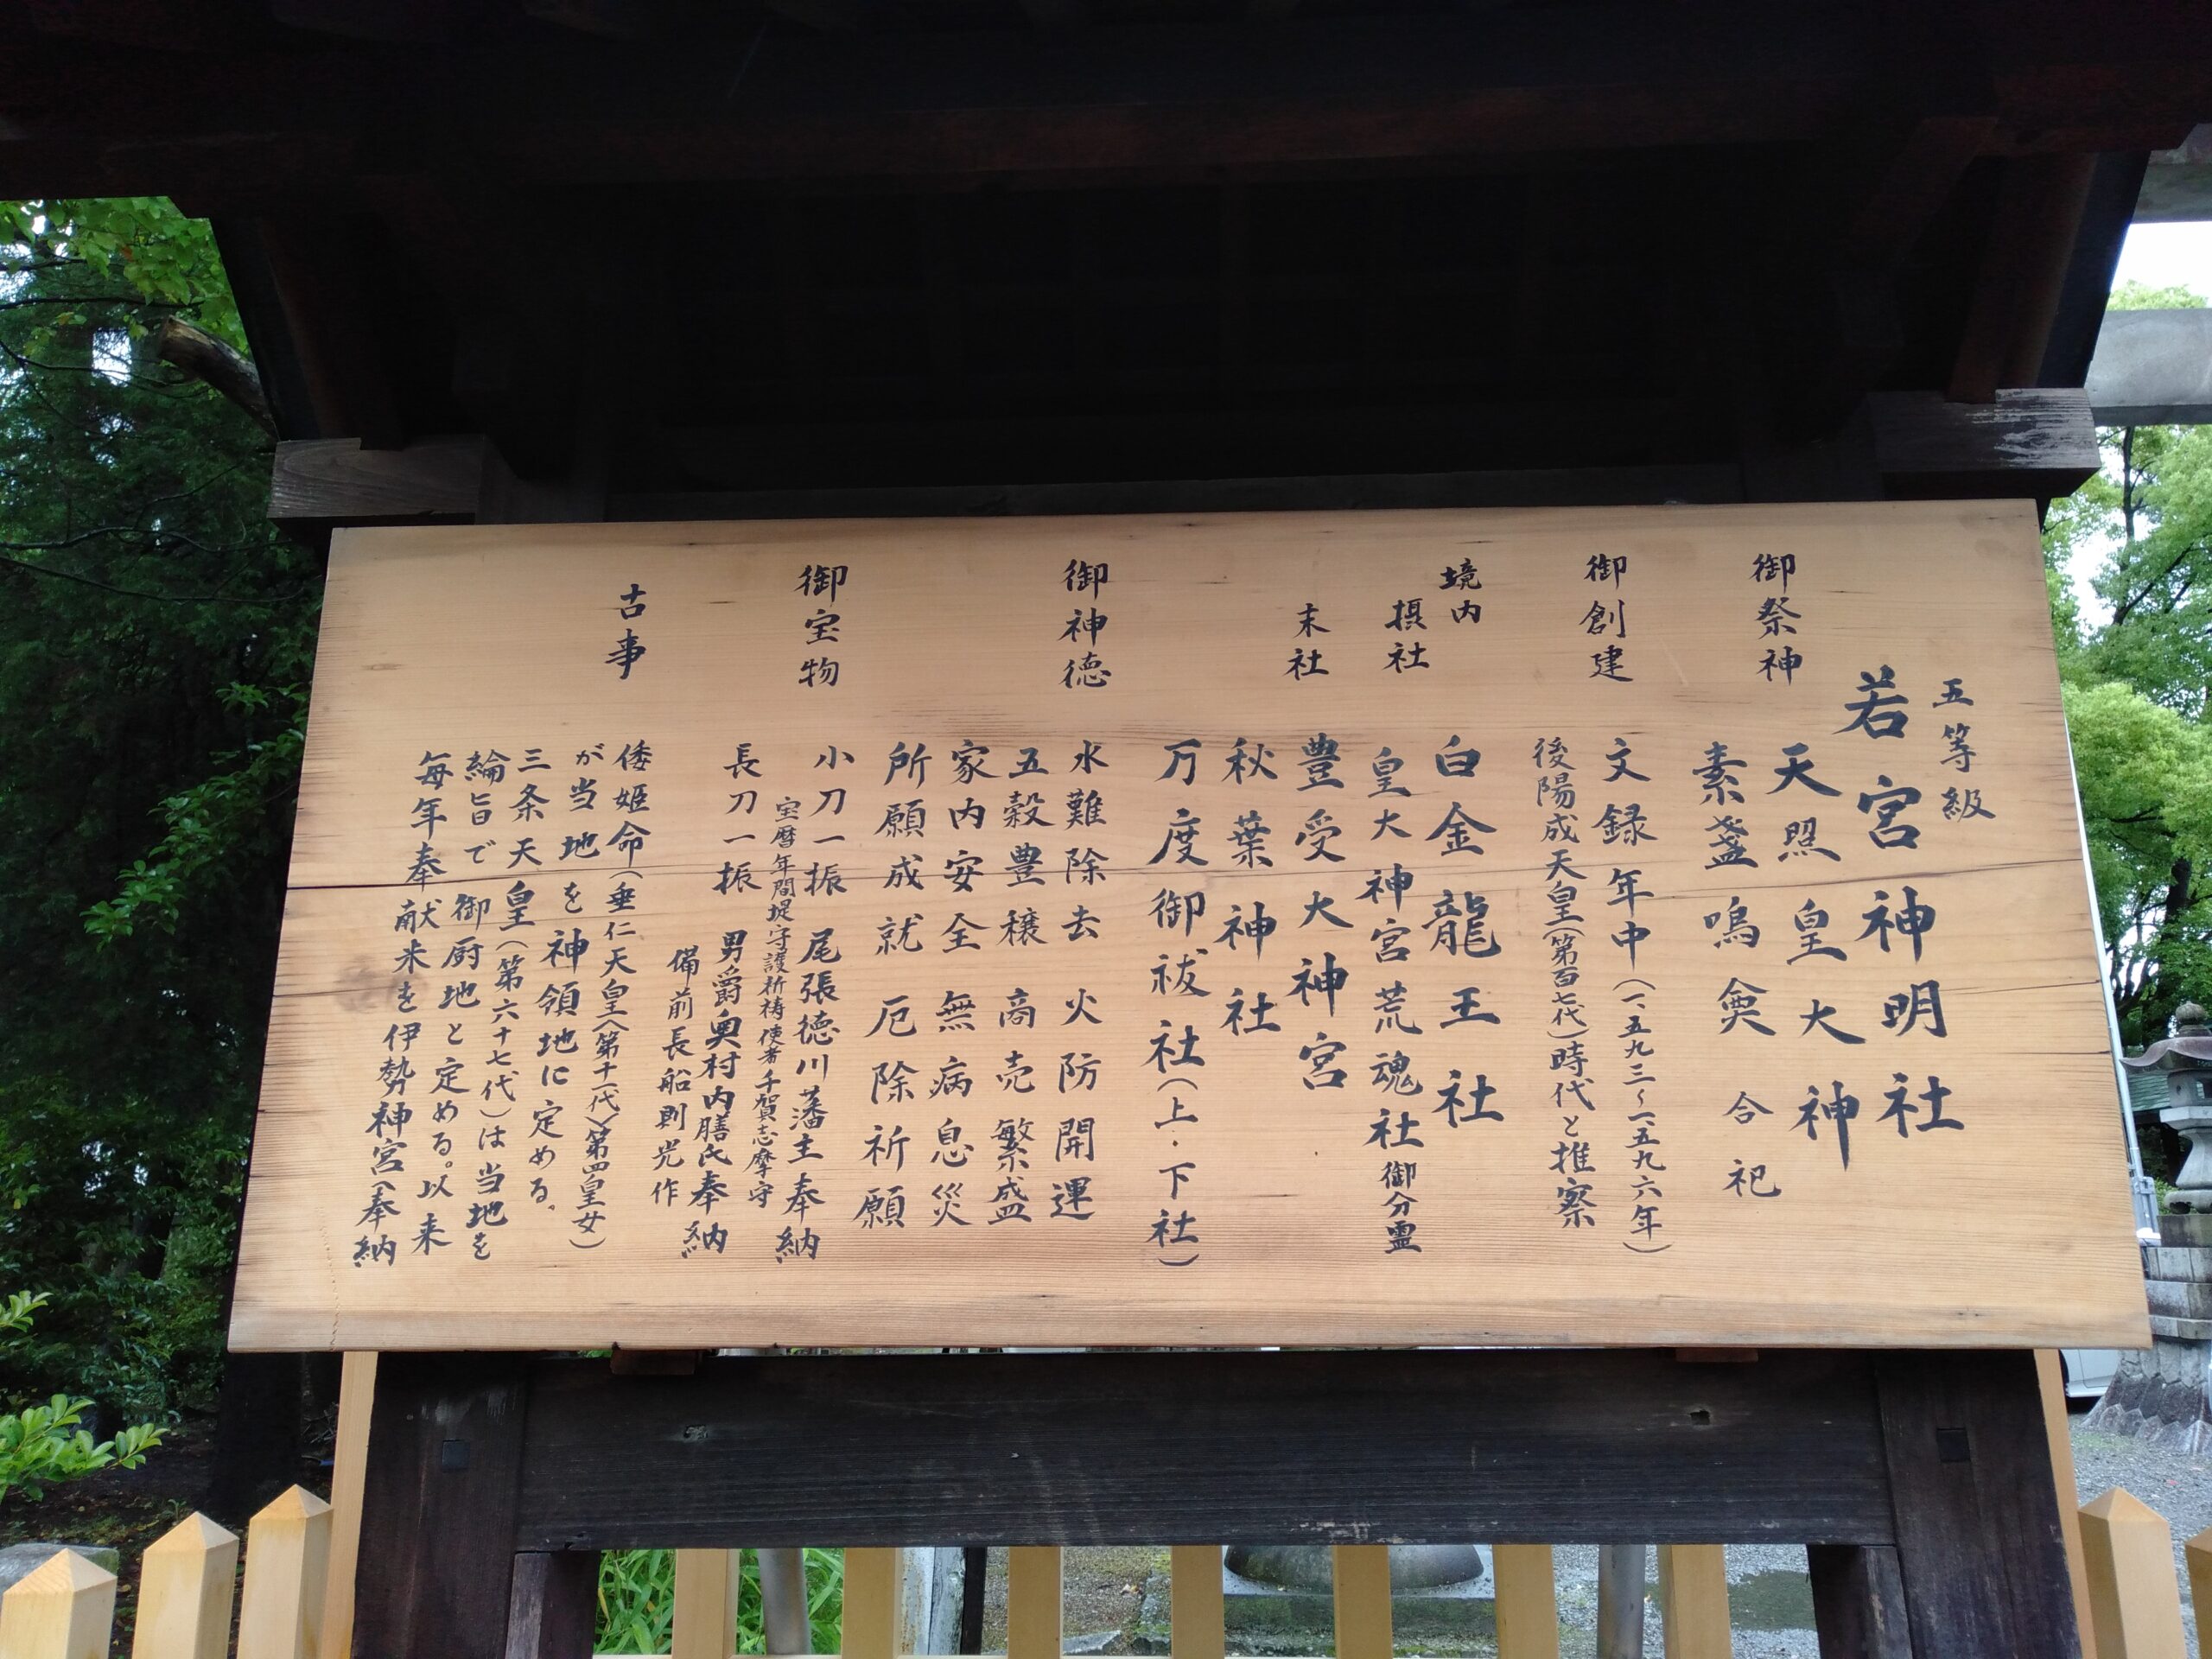 五等級
若宮神明社
御祭神
天照皇大神
素盞嗚奠 合祀
御創建
文録年中(一五九三~一五九六年)
後陽成天皇(第百七代)時代と推察
境内
白金龍王社
摂社
皇大神宮荒魂社御分霊
末社
豊受大神宮
秋葉神社
万度御祓社(上・下社)
御神徳
水難除去 火防開運
五穀豊穣 商売繁盛
家内安全 無病息災
所願成就 厄除祈願
御宝物
小刀一振 尾張徳川藩主奉納
宝暦年間堤守護祈祷使者千賀志摩守
長刀一振 男爵奥村内膳氏奉納
備前長船則光作
古事
倭姫命(垂仁天皇〈第十一代〉第四皇女)
が当地を神領地に定める。
三条天皇(第六十七代)は当地を
綸旨で御厨地と定める。以来
毎年奉献米を伊勢神宮へ奉納